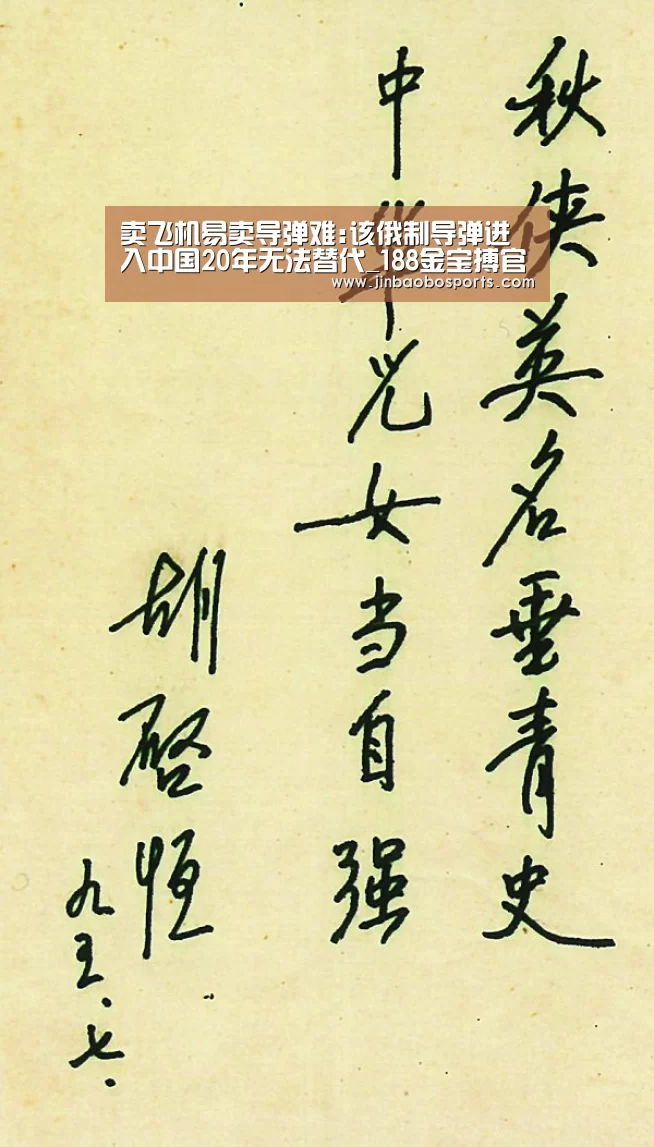 秋侠英名垂青史
中华儿女当自强
胡启恒
九五、七、
卖飞机易卖导弹难:该俄制导弹进
入中国20年无法替代_188金宝搏官
www.jinbaobosports.com